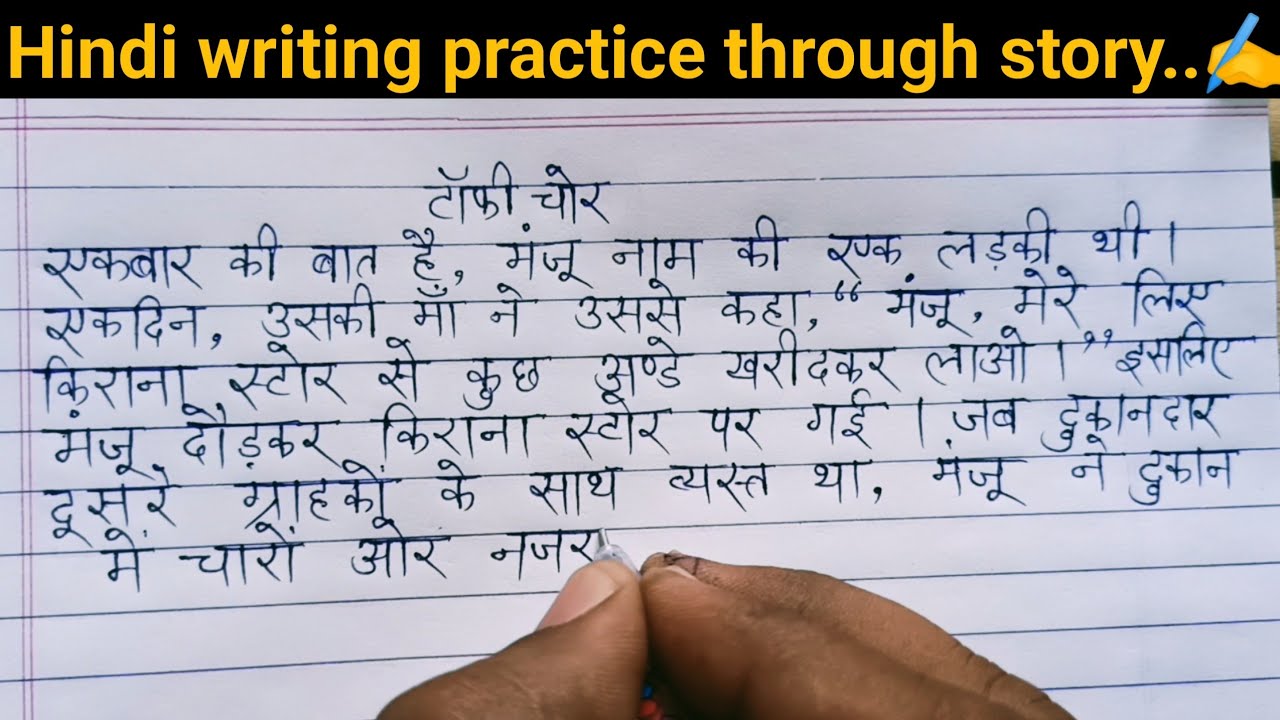 Hindi writing practice through story..✍️
टॉफी चोर
एकबार की बात है, मंजू नाम की एक लड़की थी।
एकदिन, उसकी माँ ने उससे कहा, “ मंजू, मेरे लिए
किराना स्टोर से कुछ अण्डे खरीदकर लाओ।” इसलिए
मंजू दौड़कर किराना स्टोर पर गई। जब दुकानदार
दूसरे ग्राहकों के साथ व्यस्त था, मंजू ने दुकान
में चारों ओर नजर